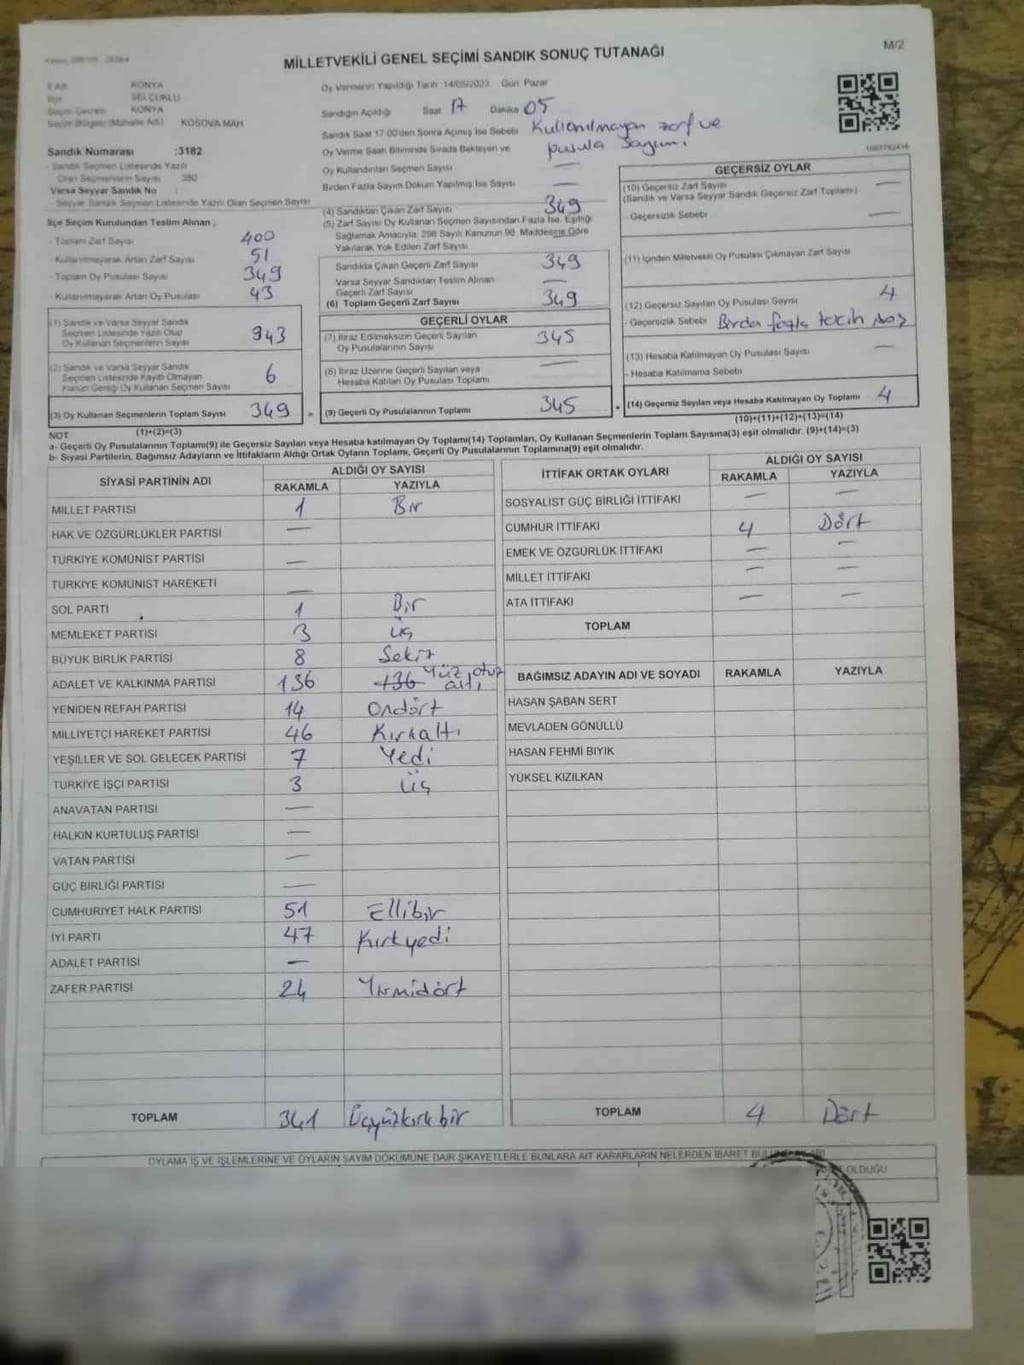 MİLLETVEKİLİ GENEL SEÇİMİ SANDIK SONUÇ TUTANAĞI
M/2
KONYA
SELÇUKLU
KONYA
KOSOVA MAH
Oy Vermenin Yapıldığı Tarih 14/05/2023 Gün: Pazar
Sandığın Açıldığı Saat 17 Dakika 05
Sandık Saat 17:00'den Sonra Açılmış İse Sebebi Kullanılmayan zarf ve
pusula sayımı
Sandık Numarası :3182
Sandık Seçmen Listesinde Yazılı
Olan Seçmenlerin Sayısı 380
Varsa Seyyar Sandık No :
Seyyar Sandık Seçmen Listesinde Yazılı Olan Seçmen Sayısı
İlçe Seçim Kurulundan Teslim Alınan ;
- Toplam Zarf Sayısı 400
- Kullanılmayarak Artan Zarf Sayısı 51
- Toplam Oy Pusulası Sayısı 349
- Kullanılmayarak Artan Oy Pusulası 43
(1) Sandık ve Varsa Seyyar Sandık
Seçmen Listesinde Yazılı Olup
Oy Kullanan Seçmenlerin Sayısı 343
(2) Sandık ve Varsa Seyyar Sandık
Seçmen Listesinde Kayıtlı Olmayan
Kanun Gereği Oy Kullanan Seçmen Sayısı 6
(3) Oy Kullanan Seçmenlerin Toplam Sayısı 349
(1)+(2)=(3)
Oy Verme Saati Bitiminde Sırada Bekleyen ve
Oy Kullandırılan Seçmen Sayısı —
Birden Fazla Sayım Döküm Yapılmış İse Sayısı —
(4) Sandıktan Çıkan Zarf Sayısı 349
(5) Zarf Sayısı Oy Kullanan Seçmen Sayısından Fazla İse, Eşitliği
Sağlamak Amacıyla; 298 Sayılı Kanunun 98. Maddesine Göre
Yakılarak Yok Edilen Zarf Sayısı
Sandıkta Çıkan Geçerli Zarf Sayısı 349
Varsa Seyyar Sandıktan Teslim Alınan
Geçerli Zarf Sayısı —
(6) Toplam Geçerli Zarf Sayısı 349
GEÇERLİ OYLAR
(7) İtiraz Edilmeksizin Geçerli Sayılan
Oy Pusulalarının Sayısı 345
(8) İtiraz Üzerine Geçerli Sayılan veya
Hesaba Katılan Oy Pusulası Toplamı —
= (9) Geçerli Oy Pusulalarının Toplamı 345
GEÇERSİZ OYLAR
(10) Geçersiz Zarf Sayısı —
(Sandık ve Varsa Seyyar Sandık Geçersiz Zarf Toplamı)
- Geçersizlik Sebebi —
(11) İçinden Milletvekili Oy Pusulası Çıkmayan Zarf Sayısı
(12) Geçersiz Sayılan Oy Pusulası Sayısı 4
- Geçersizlik Sebebi Birden fazla tercih
(13) Hesaba Katılmayan Oy Pusulası Sayısı —
- Hesaba Katılmama Sebebi
(14) Geçersiz Sayılan veya Hesaba Katılmayan Oy Toplamı 4
(10)+(11)+(12)+(13)=(14)
NOT
a- Geçerli Oy Pusulalarının Toplamı(9) ile Geçersiz Sayılan veya Hesaba katılmayan Oy Toplamı(14) Toplamları, Oy Kullanan Seçmenlerin Toplam Sayısına(3) eşit olmalıdır. (9)+(14)=(3)
b- Siyasi Partilerin, Bağımsız Adayların ve İttifakların Aldığı Ortak Oyların Toplamı, Geçerli Oy Pusulalarının Toplamına(9) eşit olmalıdır.
SİYASİ PARTİNİN ADI ALDIĞI OY SAYISI
RAKAMLA YAZIYLA
MİLLET PARTİSİ 1 Bir
HAK VE ÖZGÜRLÜKLER PARTİSİ —
TÜRKİYE KOMÜNİST PARTİSİ —
TÜRKİYE KOMÜNİST HAREKETİ —
SOL PARTİ 1 Bir
MEMLEKET PARTİSİ 3 üç
BÜYÜK BİRLİK PARTİSİ 8 Sekiz
ADALET VE KALKINMA PARTİSİ 136 136 Yüz otuz altı
YENİDEN REFAH PARTİSİ 14 Ondört
MİLLİYETÇİ HAREKET PARTİSİ 46 Kırkaltı
YEŞİLLER VE SOL GELECEK PARTİSİ 7 Yedi
TÜRKİYE İŞÇİ PARTİSİ 3 Üç
ANAVATAN PARTİSİ —
HALKIN KURTULUŞ PARTİSİ —
VATAN PARTİSİ —
GÜÇ BİRLİĞİ PARTİSİ —
CUMHURİYET HALK PARTİSİ 51 Ellibir
İYİ PARTİ 47 Kırkyedi
ADALET PARTİSİ —
ZAFER PARTİSİ 24 Yirmidört
TOPLAM 341 Üçyüzkırkbir
İTTİFAK ORTAK OYLARI ALDIĞI OY SAYISI
RAKAMLA YAZIYLA
SOSYALİST GÜÇ BİRLİĞİ İTTİFAKI — —
CUMHUR İTTİFAKI 4 Dört
EMEK VE ÖZGÜRLÜK İTTİFAKI — —
MİLLET İTTİFAKI — —
ATA İTTİFAKI — —
TOPLAM
BAĞIMSIZ ADAYIN ADI VE SOYADI RAKAMLA YAZIYLA
HASAN ŞABAN SERT
MEVLADEN GÖNÜLLÜ
HASAN FEHMİ BIYIK
YÜKSEL KIZILKAN
TOPLAM 4 Dört
OYLAMA İŞ VE İŞLEMLERİNE VE OYLARIN SAYIM DÖKÜMÜNE DAİR ŞİKAYETLERLE BUNLARA AİT KARARLARIN NELERDEN İBARET
OLDUĞU